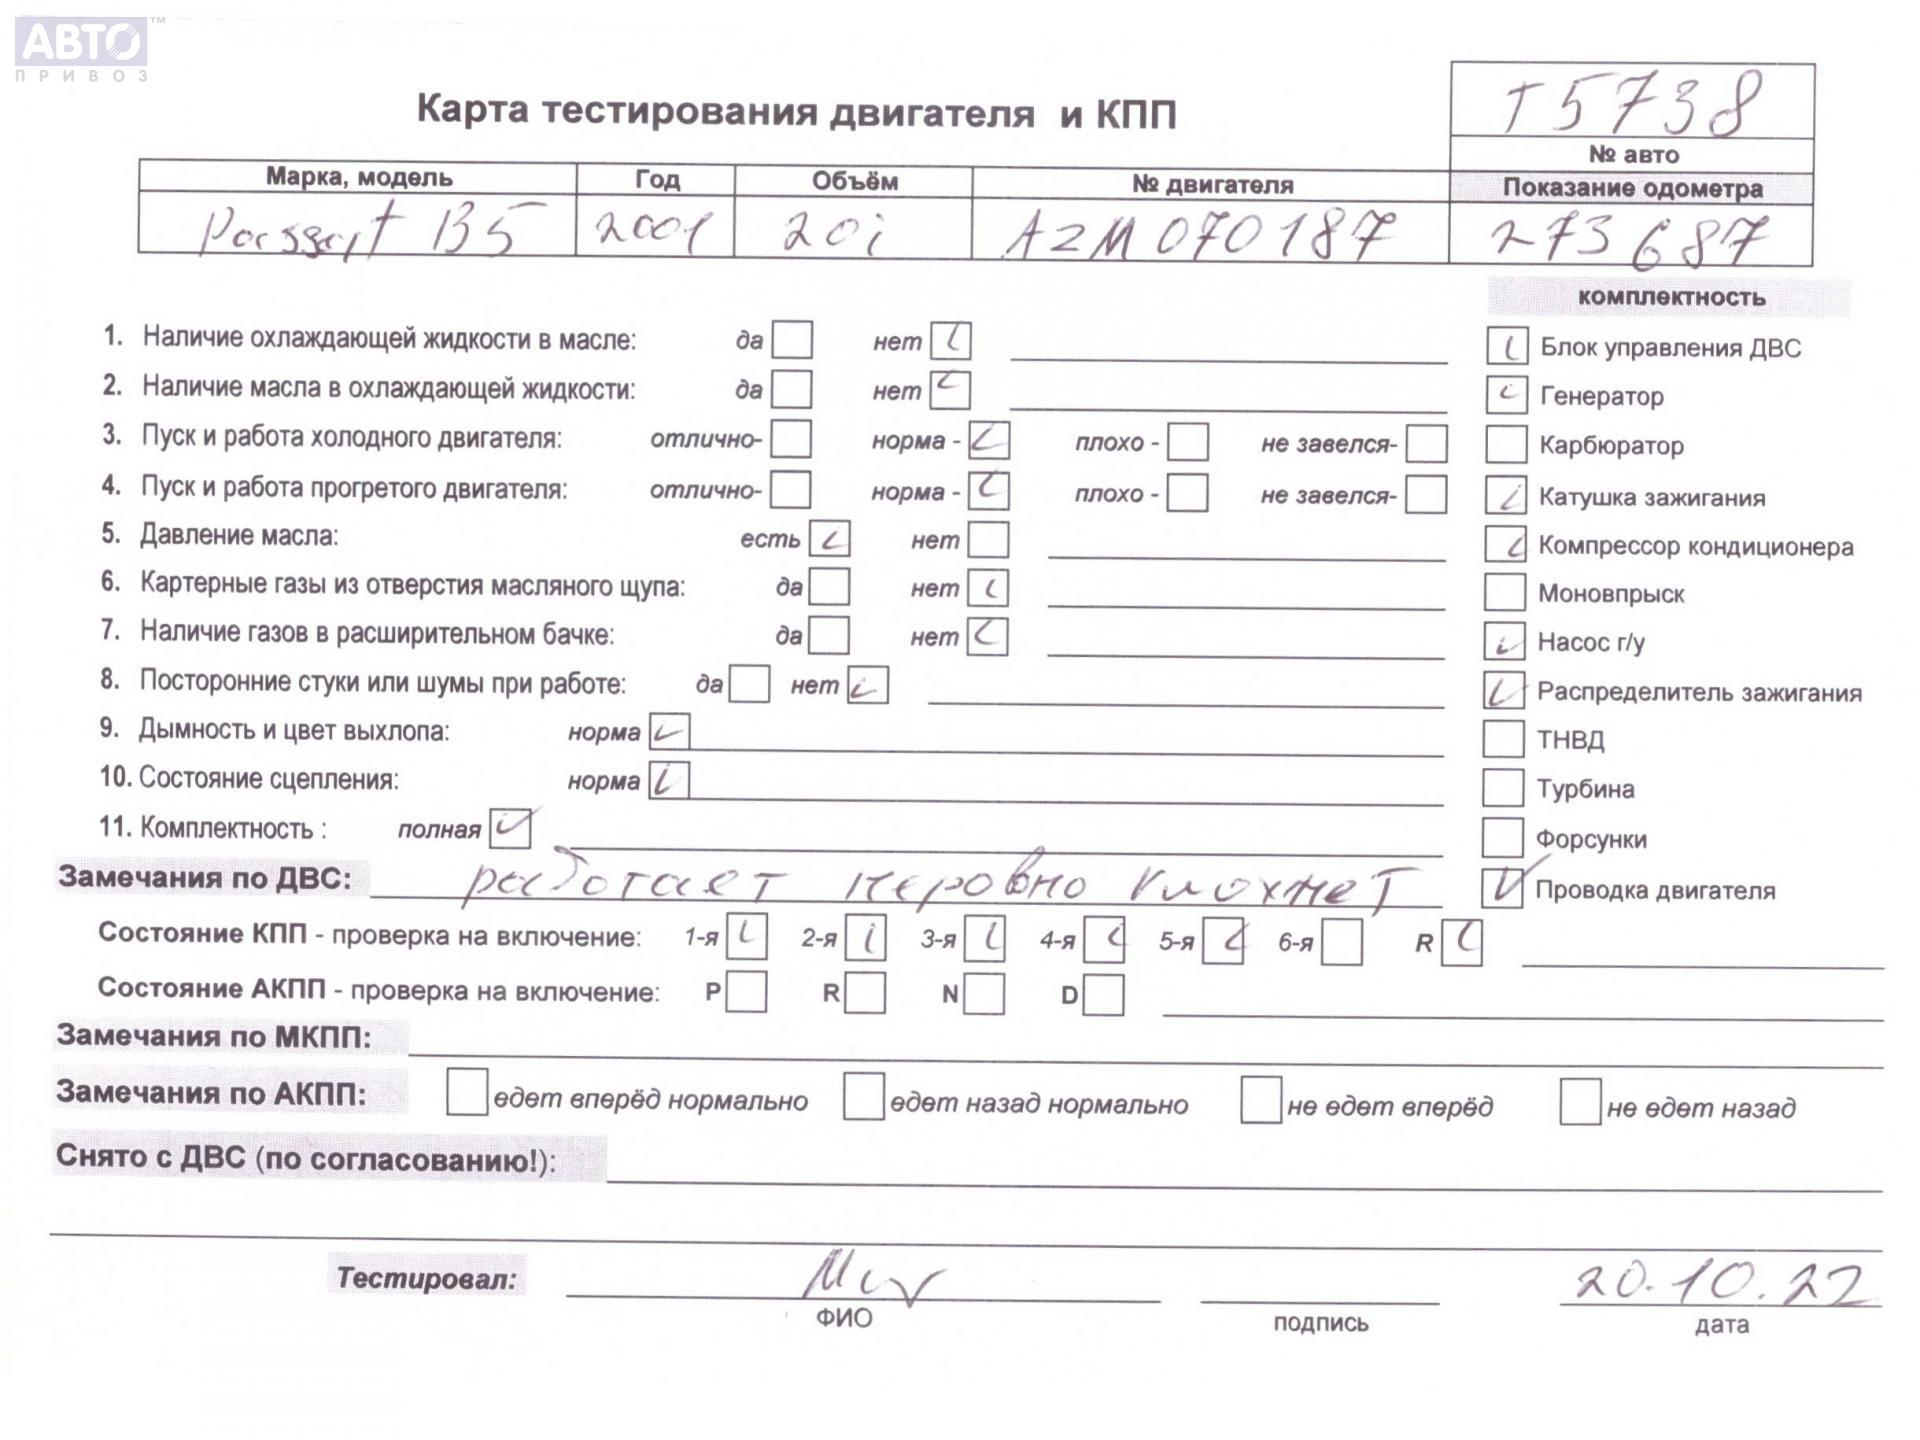 АВТО™
ПРИВОЗ
Карта тестирования двигателя и КПП
T5738
№ авто
Марка, модель Год Объём № двигателя Показание одометра
Passat B5 2001 20i AZM070187 273687
комплектность
1. Наличие охлаждающей жидкости в масле: да нет
Блок управления ДВС
2. Наличие масла в охлаждающей жидкости: да нет
Генератор
3. Пуск и работа холодного двигателя: отлично- норма - плохо - не завелся-
Карбюратор
4. Пуск и работа прогретого двигателя: отлично- норма - плохо - не завелся-
Катушка зажигания
5. Давление масла: есть нет
Компрессор кондиционера
6. Картерные газы из отверстия масляного щупа: да нет
Моновпрыск
7. Наличие газов в расширительном бачке: да нет
Насос г/у
8. Посторонние стуки или шумы при работе: да нет
Распределитель зажигания
9. Дымность и цвет выхлопа: норма
ТНВД
10. Состояние сцепления: норма
Турбина
11. Комплектность : полная
Форсунки
Замечания по ДВС: работает неровно глохнет
Проводка двигателя
Состояние КПП - проверка на включение: 1-я 2-я 3-я 4-я 5-я 6-я R
Состояние АКПП - проверка на включение: P R N D
Замечания по МКПП:
Замечания по АКПП: едет вперёд нормально едет назад нормально не едет вперёд не едет назад
Снято с ДВС (по согласованию!):
Тестировал: 20.10.22
ФИО подпись дата